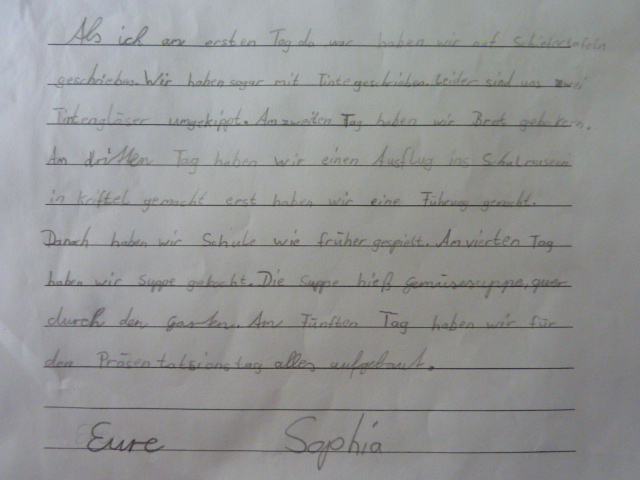 Als ich am ersten Tag da war haben wir auf Schiefertafeln
geschrieben. Wir haben sogar mit Tinte geschrieben. Leider sind uns zwei
Tintengläser umgekippt. Am zweiten Tag haben wir Brot gebacken.
Am dritten Tag haben wir einen Ausflug ins Schulmuseum
in Kriftel gemacht erst haben wir eine Führung gemacht.
Danach haben wir Schule wie früher gespielt. Am vierten Tag
haben wir Suppe gekocht. Die Suppe hieß Gemüsesuppe, quer
durch den Garten. Am Fünften Tag haben wir für
den Präsentatsionstag alles aufgebaut.
Eure Sophia